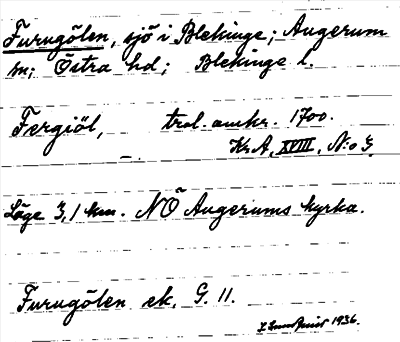 Furugölen, sjö i Blekinge; Augerum
sn; Östra hd; Blekinge l.
Fergiöl, trol. omkr. 1700.
Kr.A, XVIII, N:o 3.
Läge 3,1 km. NÖ Augerums kyrka.
Furugölen ek. G. 11.
1936.